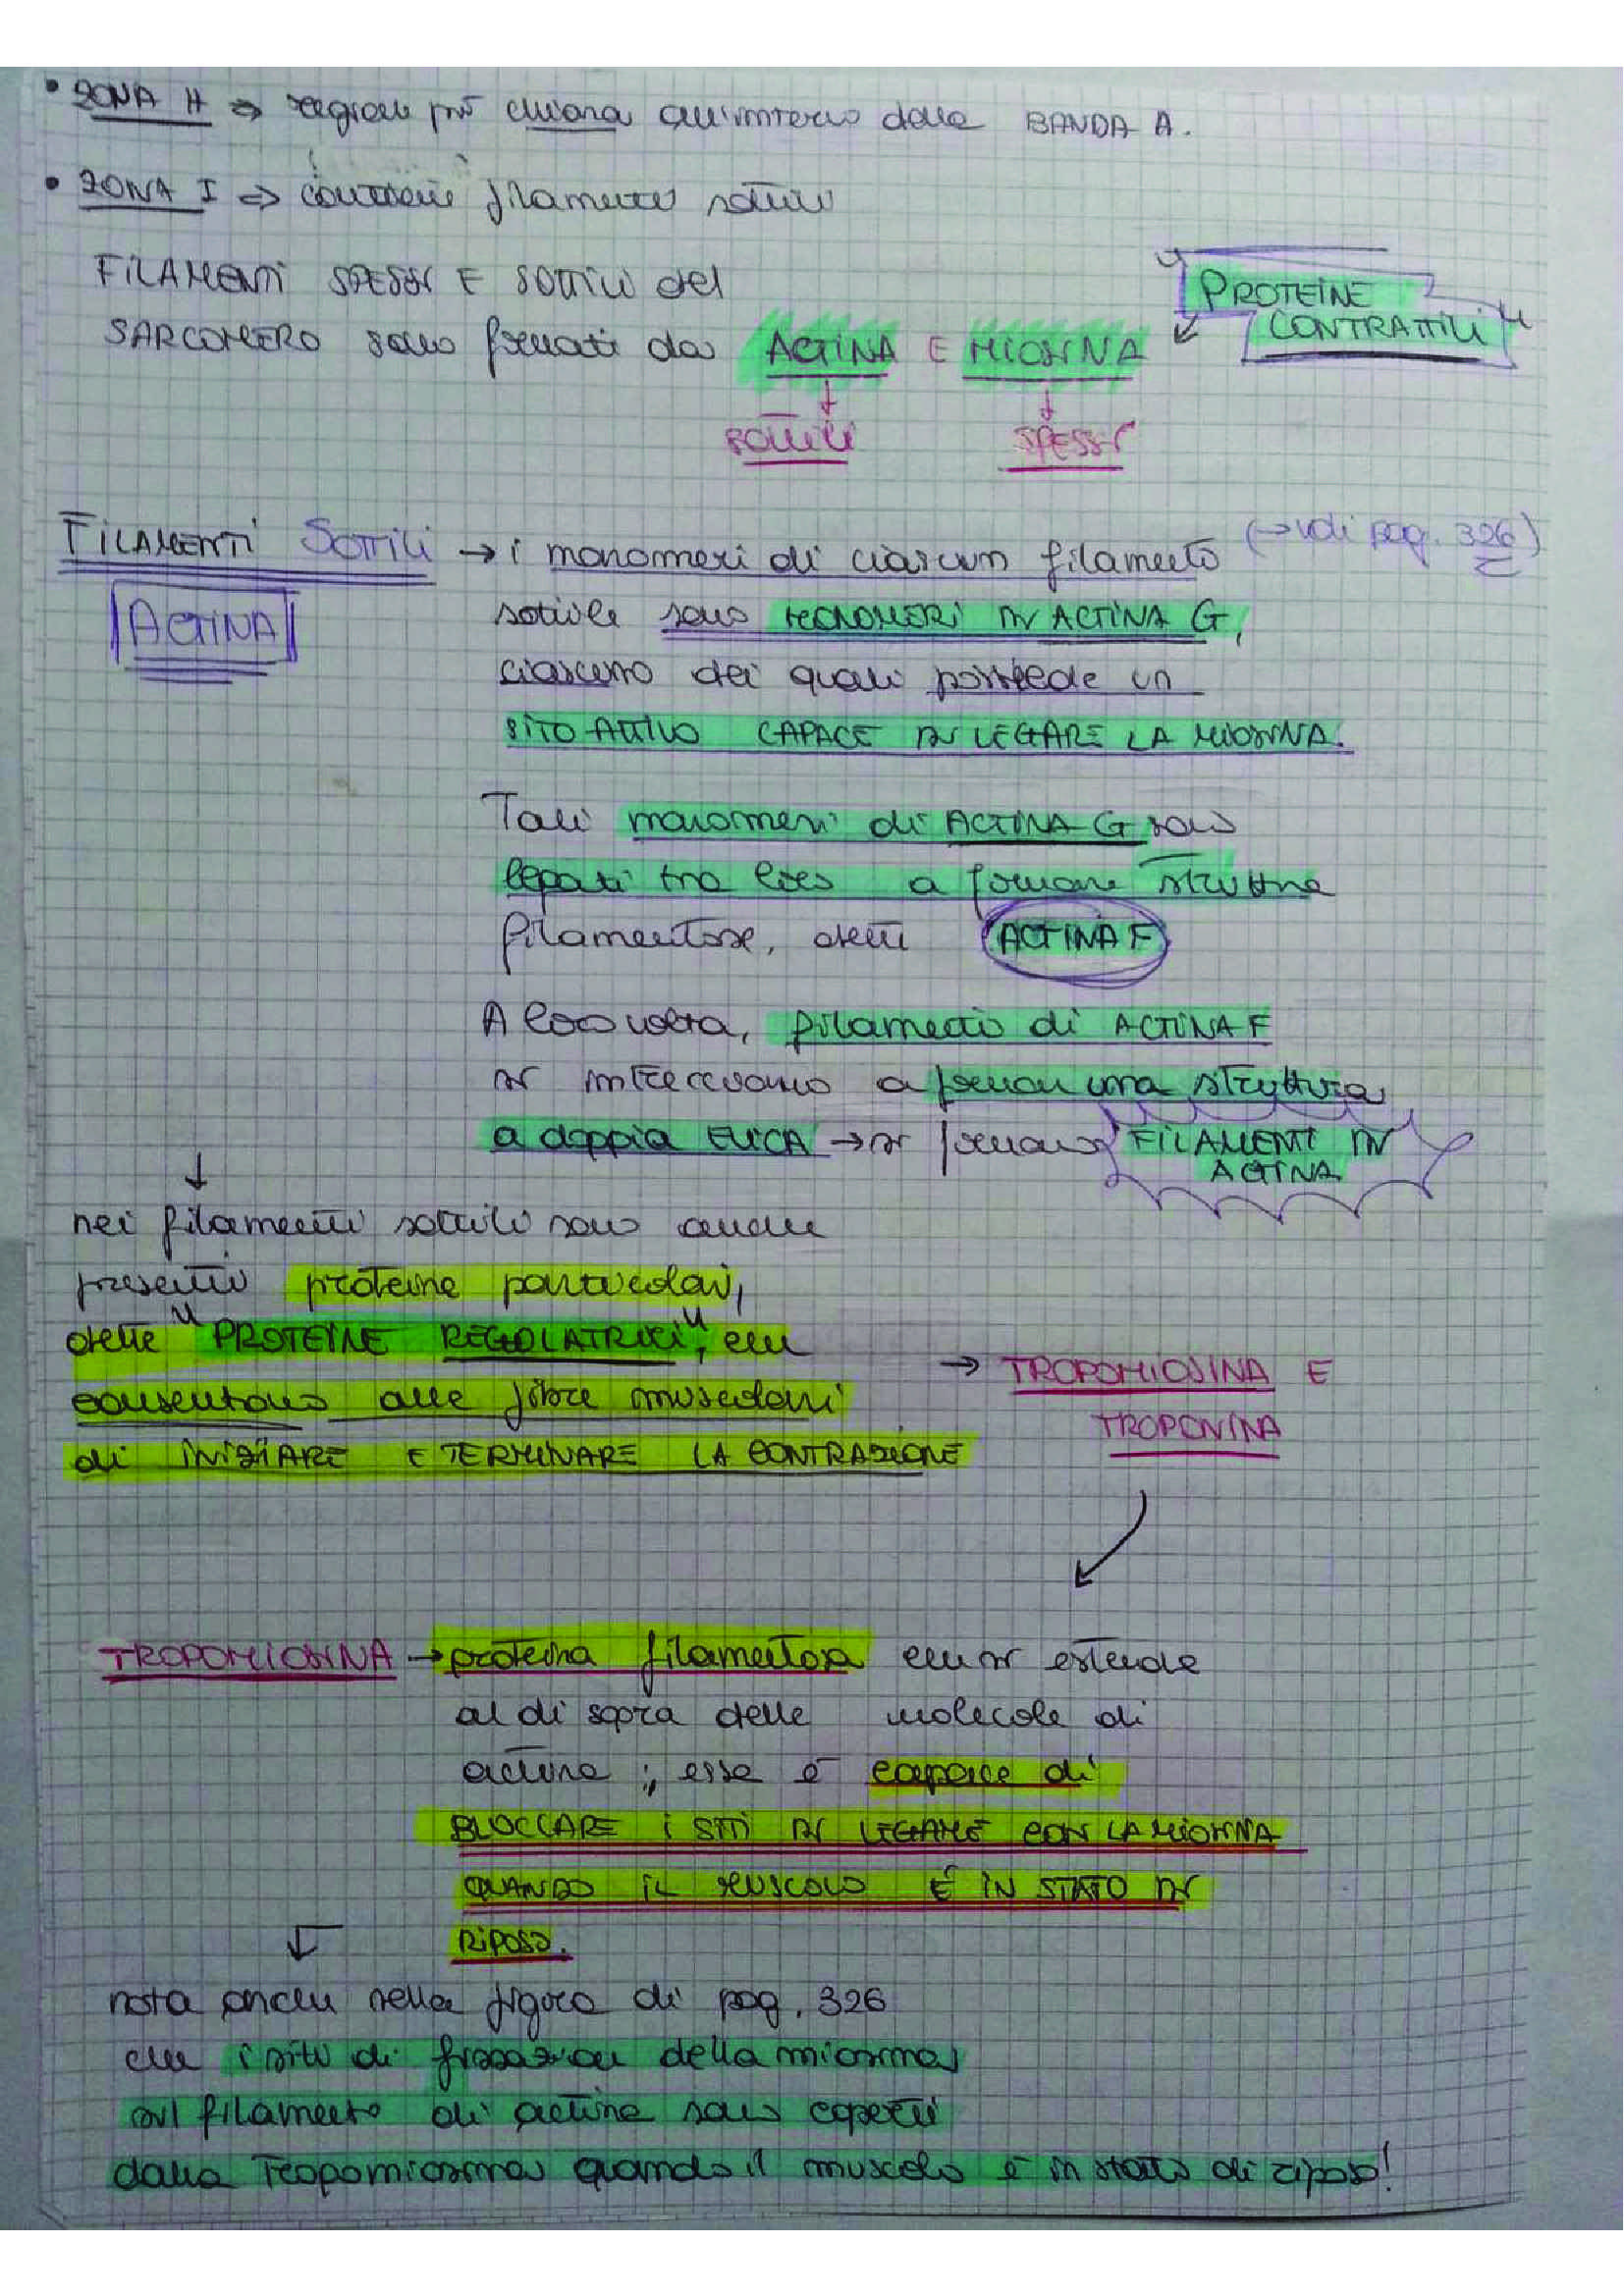 • ZONA H => regione più chiara all'interno della BANDA A.
• ZONA I => contiene filamenti sottili
FILAMENTI SPESSI E SOTTILI del
SARCOMERO sono formati da ACTINA E MIOSINA
"PROTEINE
CONTRATTILI"
SOTTILI SPESSI
FILAMENTI SOTTILI → i monomeri di ciascun filamento (→ vedi pag. 326)
ACTINA
sottile sono MONOMERI DI ACTINA G,
ciascuno dei quali possiede un
SITO ATTIVO CAPACE DI LEGARE LA MIOSINA.
Tali monomeri di ACTINA G sono
legati tra loro a formare strutture
filamentose, dette ACTINA F
A loro volta, filamenti di ACTINA F
si intrecciano a formare una struttura
a doppia ELICA → si formano FILAMENTI DI
ACTINA
↓
nei filamenti sottili sono anche
presenti proteine particolari,
dette "PROTEINE REGOLATRICI", che
consentono alle fibre muscolari
di INIZIARE E TERMINARE LA CONTRAZIONE
→ TROPOMIOSINA E
TROPONINA
TROPOMIOSINA → proteina filamentosa che si estende
al di sopra delle molecole di
actina; essa è capace di
BLOCCARE I SITI DI LEGAME CON LA MIOSINA
QUANDO IL MUSCOLO È IN STATO DI
RIPOSO.
nota anche nella figura di pag. 326
che i siti di fissazione della miosina
sul filamento di actina sono coperti
dalla Tropomiosina quando il muscolo è in stato di riposo!